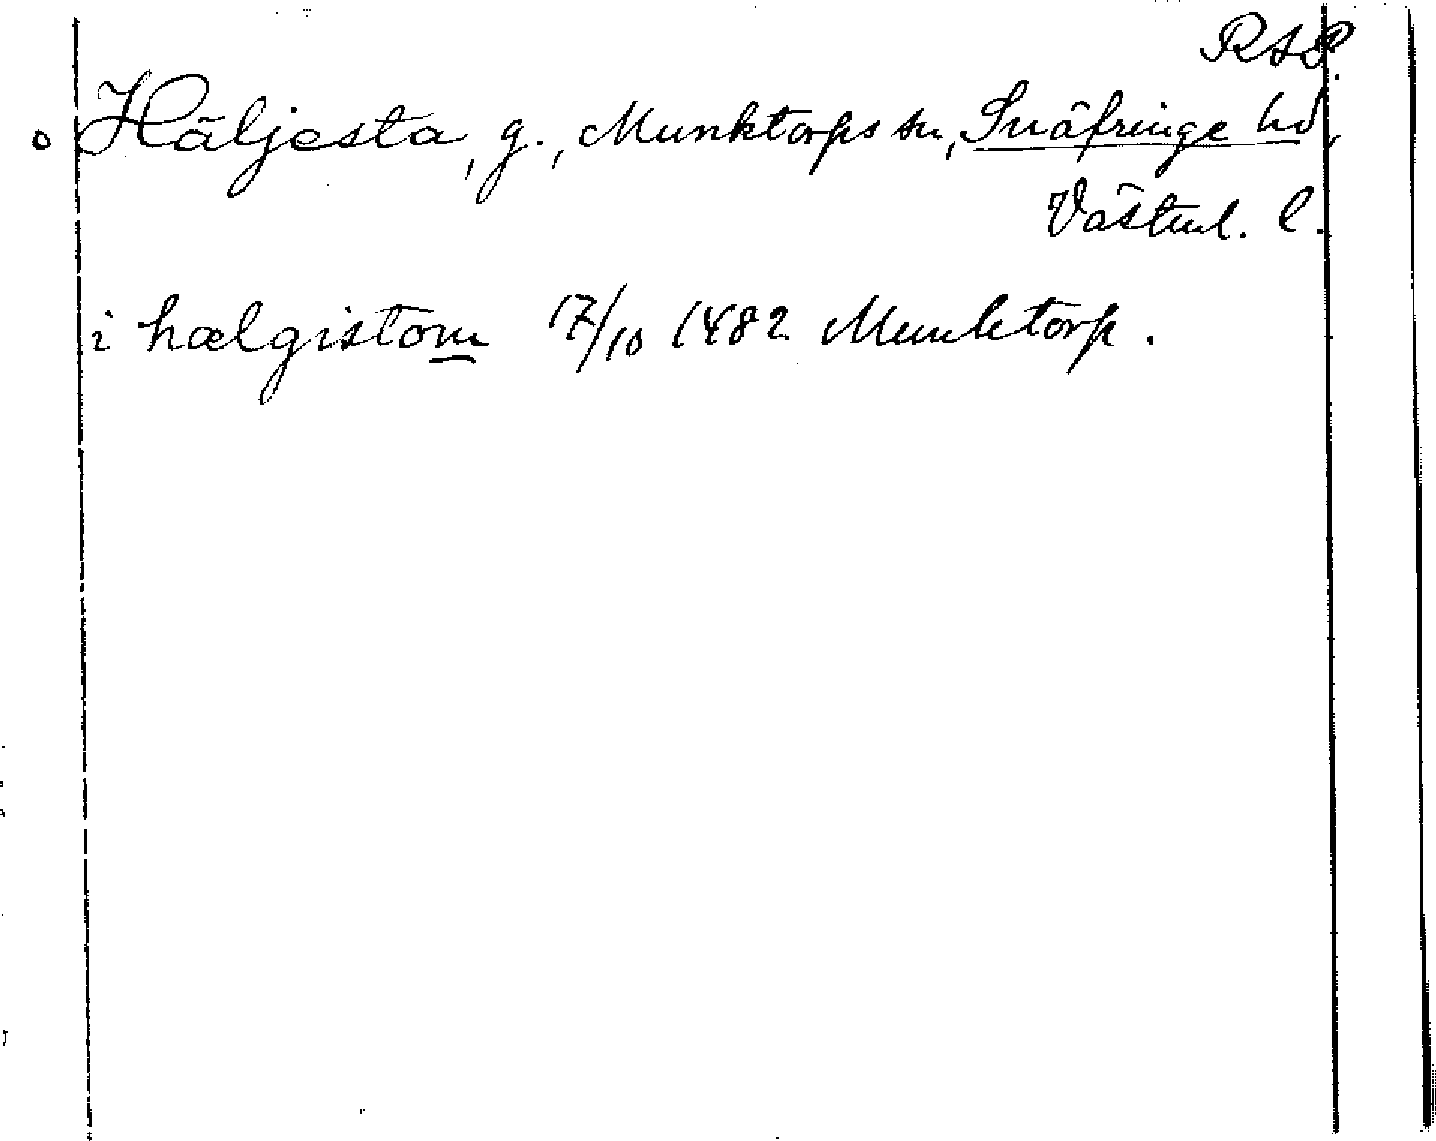 RAP.
Häljesta, g., Munktorps sn, Snäfringe hd,
Västml. l.
i hælgistom 17/10 1482 Munktorp.